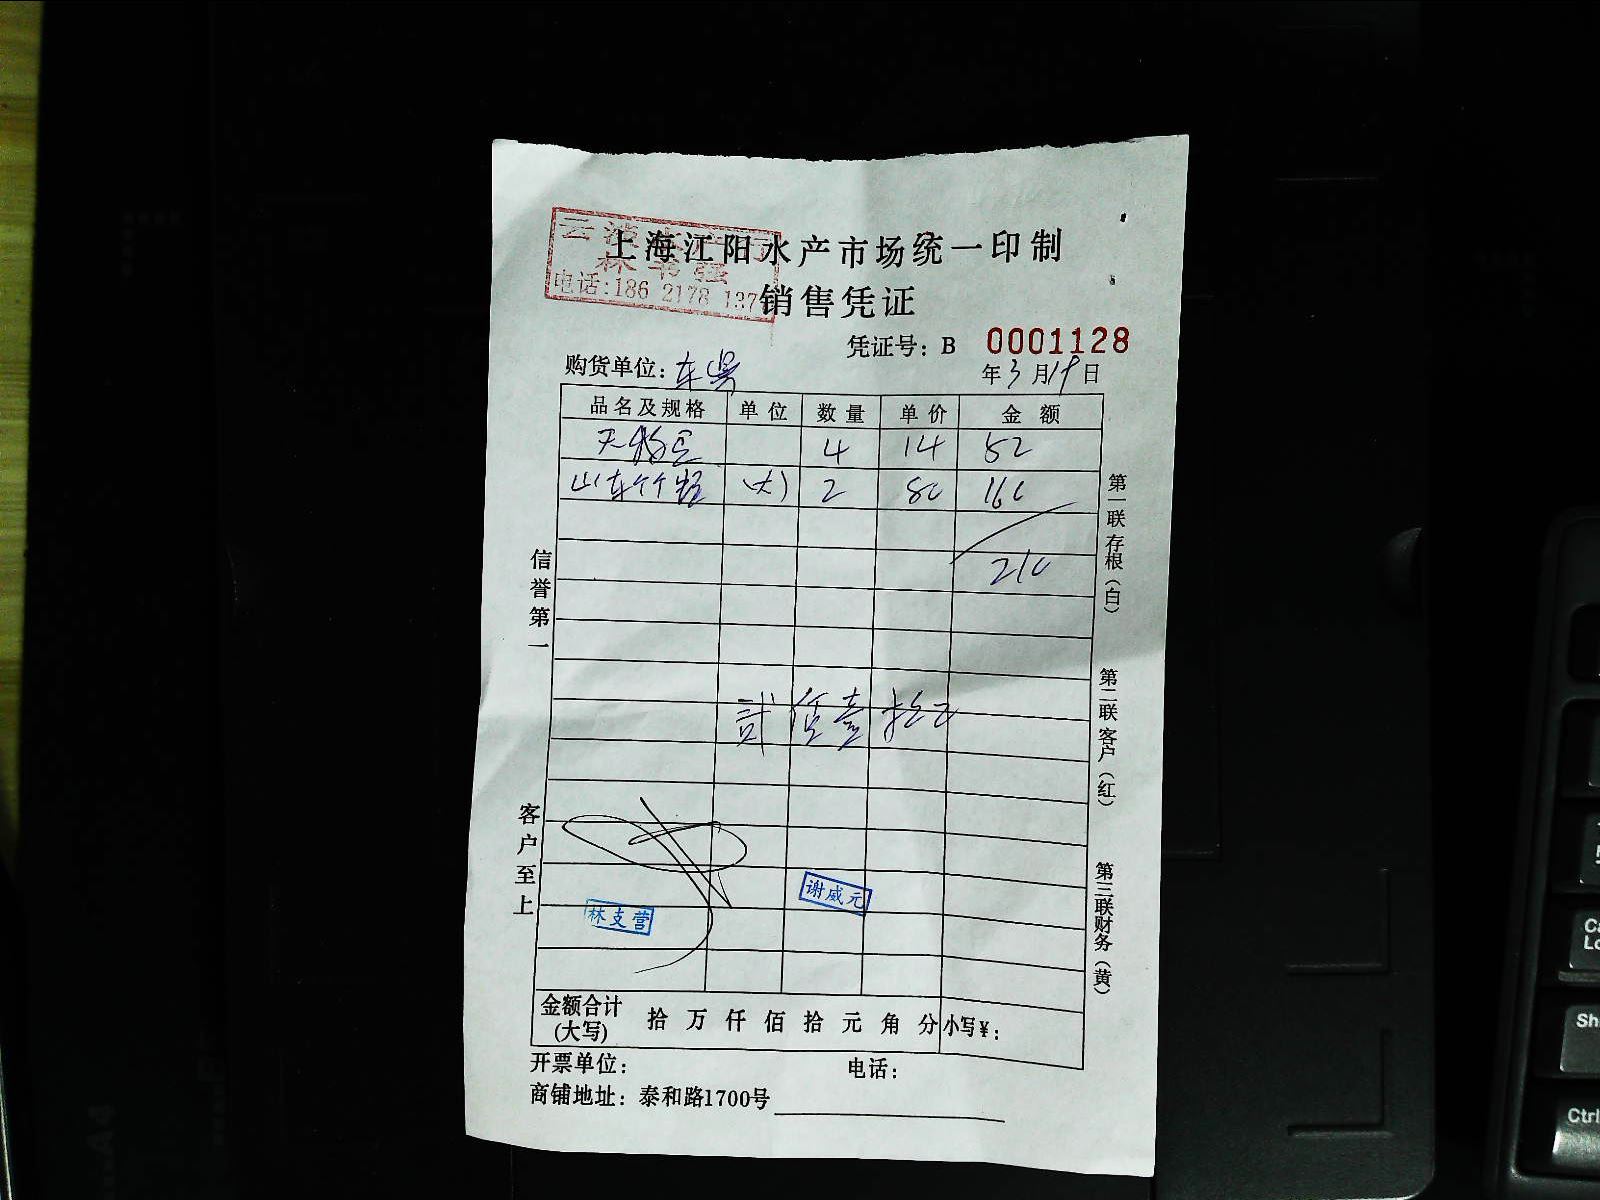 上海江阳水产市场统一印制
电话:186 2178 137
销售凭证
凭证号：B 0001128
购货单位：
年3月19日
品名及规格 单位 数量 单价 金额
4 14 52
山东竹蛏 (大) 2 80 160
210
贰佰壹拾元
信誉第一
客户至上
第一联存根（白）
第二联客户（红）
第三联财务（黄）
谢威元
林支营
金额合计(大写) 拾 万 仟 佰 拾 元 角 分 小写¥：
开票单位： 电话：
商铺地址：泰和路1700号